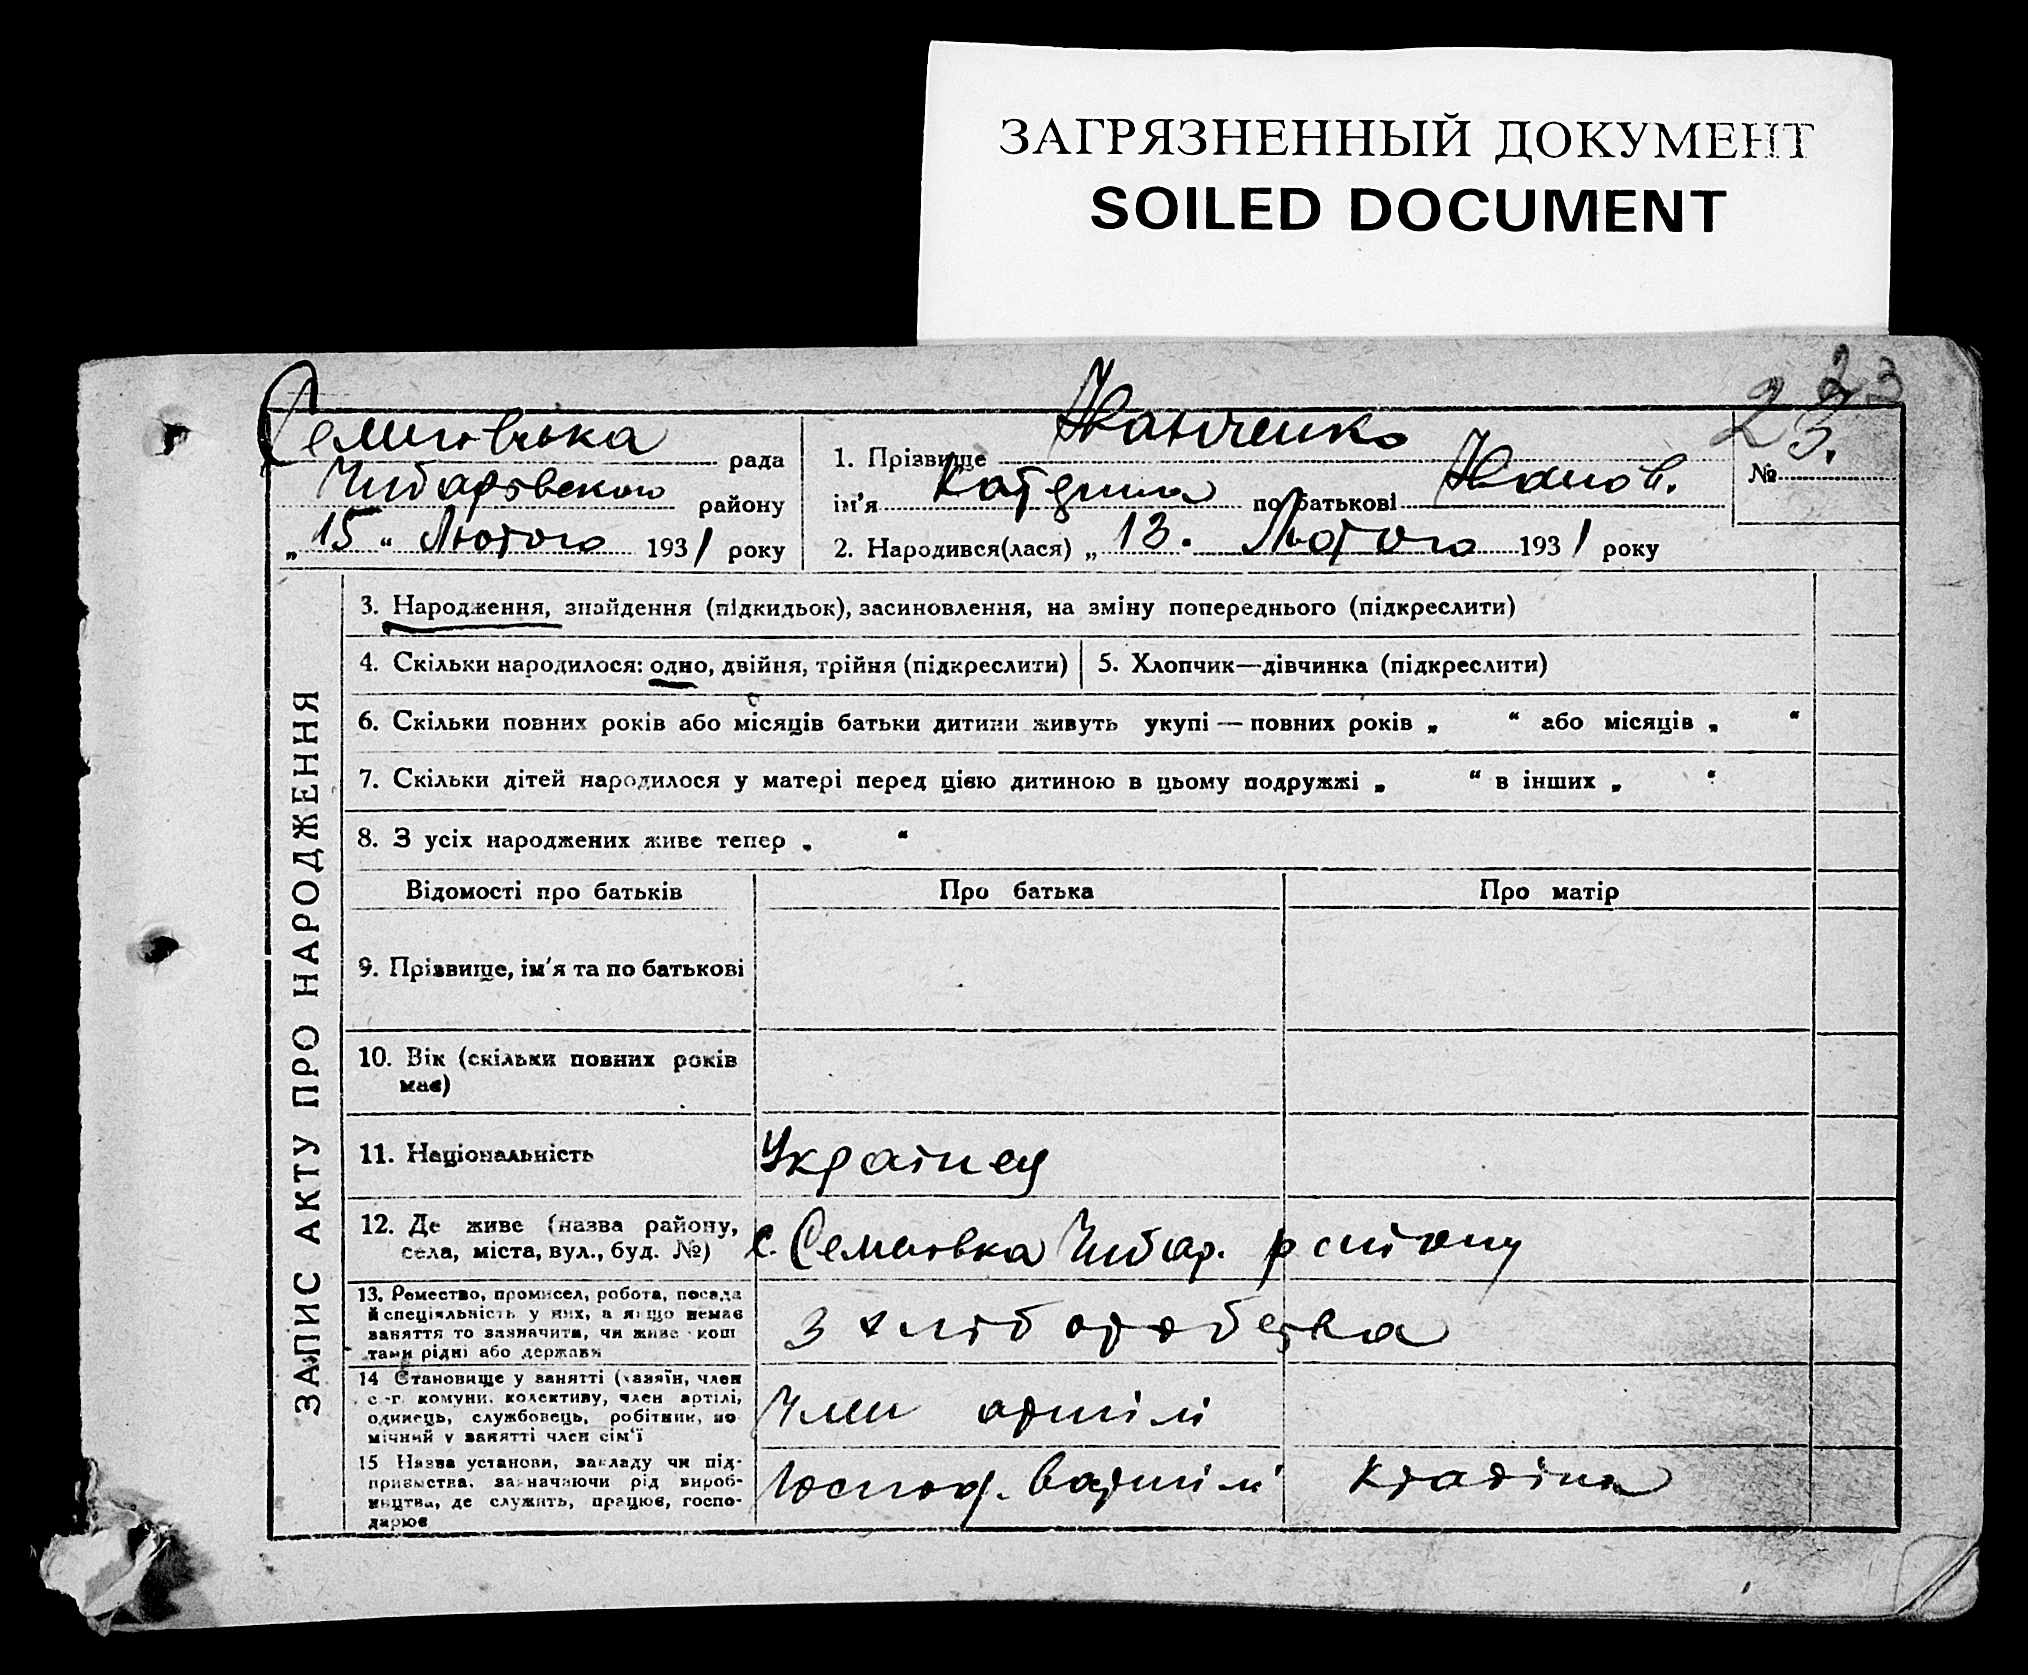 ЗАГРЯЗНЕННЫЙ ДОКУМЕНТ
SOILED DOCUMENT
23
Семенівська рада
району
„15“ Лютого 1931 року
1. Прізвище Іванченко
ім'я Катерина по батькові Іванов.
2. Народився(лася) „13. Лютого 1931 року
№ 23.
ЗАПИС АКТУ ПРО НАРОДЖЕННЯ
3. Народження, знайдення (підкидьок), засиновлення, на зміну попереднього (підкреслити)
4. Скільки народилося: одно, двійня, трійня (підкреслити)
5. Хлопчик—дівчинка (підкреслити)
6. Скільки повних років або місяців батьки дитини живуть укупі — повних років „ “ або місяців „ “
7. Скільки дітей народилося у матері перед цією дитиною в цьому подружжі „ “ в інших „ “
8. З усіх народжених живе тепер „ “
Відомості про батьків
Про батька
Про матір
9. Прізвище, ім'я та по батькові
10. Вік (скільки повних років
має)
11. Національність
Українец
12. Де живе (назва району,
села, міста, вул., буд. №)
с. Семенівка району
13. Ремество, промисел, робота, посада
й спеціяльність у них, а якщо немає
заняття то зазначити, чи живе кош
тами рідні або держави
З хліборобства
14 Становище у занятті (хазяїн, член
с.-г. комуни, колективу, член артілі,
одинець, службовець, робітник, по
мічний у занятті член сім'ї
Член артілі
15 Назва установи, закладу чи під-
приємства, зазначаючи рід вироб-
ництва, де служить, працює, госпо-
дарює
Господ. в артілі